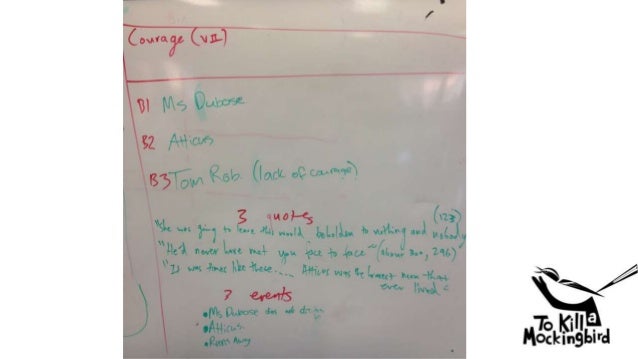 Courage (VII)
B1 Ms Dubose
B2 Atticus
B3 Tom Rob. (lack of courage)
3 quotes
"She was going to leave this world beholden to nothing and nobody (128)
"He'd never have met you face to face" (about Boo, 296)
"It was times like these.... Atticus was the bravest man that
ever lived"
events
• Ms Dubose
• Atticus
• Runs Away
To Kill a
Mockingbird